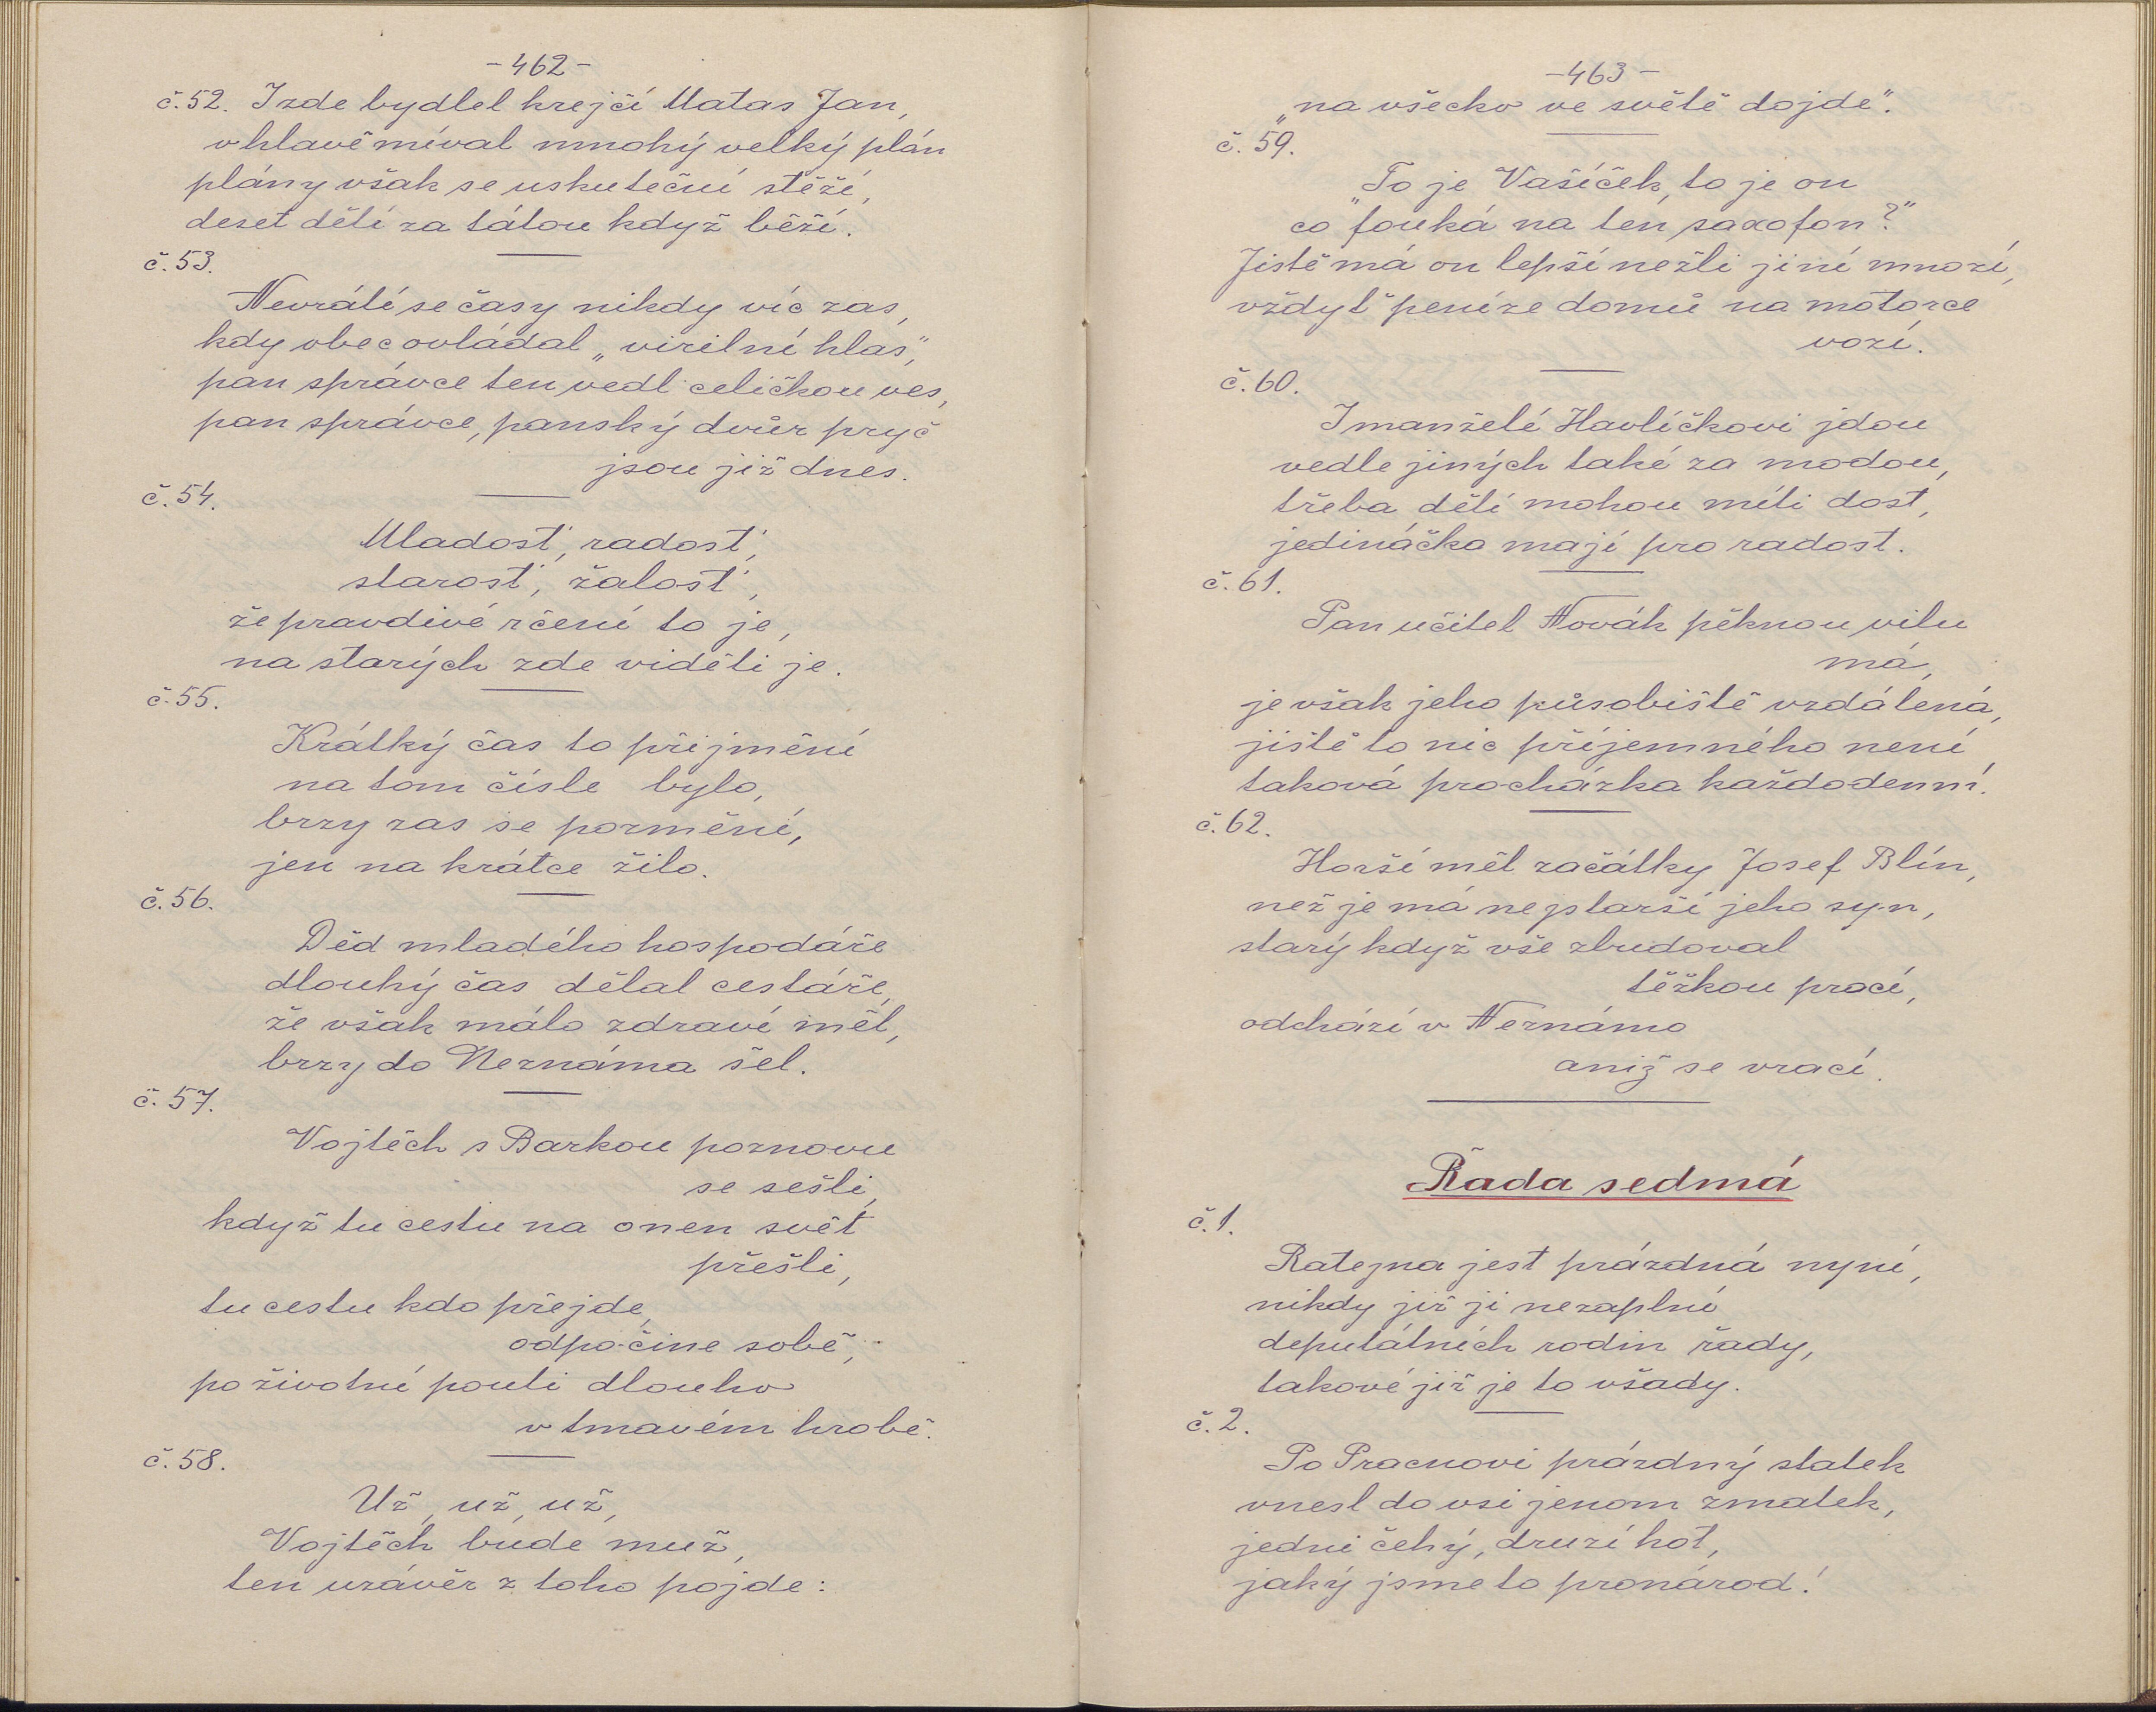 -462-
č. 52. I zde bydlel krejčí Matas Jan,
v hlavě míval mnohý velký plán
plány však se uskuteční stěží,
deset dětí za tátou když běží.
č. 53.
Nevrátí se časy nikdy víc zas,
kdy obec ovládal „virilní hlas",
pan správce ten vedl celičkou ves,
pan správce, panský dvůr pryč
jsou již dnes.
č. 54.
Mladosť, radosť,
starosť, žalosť,
že pravdivé rčení to je,
na starých zde viděti je.
č. 55.
Krátký čas to přijmění
na tom čísle bylo,
brzy zas se pozmění,
jen na krátce žilo.
č. 56.
Děd mladého hospodáře
dlouhý čas dělal cestáře,
že však málo zdraví měl,
brzy do Neznáma šel.
č. 57.
Vojtěch s Barkou poznovu
se sešli,
když tu cestu na onen svět
přešli,
tu cestu kdo přejde,
odpočine sobě,
po životní pouti dlouho
v tmavém hrobě.
č. 58.
Už, už, už,
Vojtěch bude muž,
ten uzávěr z toho pojde:
-463-
„na všecko ve světě dojde".
č. 59.
„To je Vašíček, to je on
co fouká na ten saxofon?"
Jistě má on lepší nežli jiní mnozí,
vždyť peníze domů na motorce
vozí.
č. 60.
I manželé Havlíčkovi jdou
vedle jiných také za modou,
třeba dětí mohou míti dost,
jedináčka mají pro radost.
č. 61.
Pan učitel Novák pěknou vilu
má,
je však jeho působiště vzdálená,
jistě to nic příjemného není
taková procházka každodenní.
č. 62.
Horší měl začátky Josef Blín,
než je má nejstarší jeho syn,
starý když vše zbudoval
těžkou prací,
odchází v Neznámo
aniž se vrací.
Řada sedmá
č. 1.
Ratejna jest prázdná nyní,
nikdy již ji nezaplní
deputátních rodin řady,
takové již je to všady.
č. 2.
Po Pracnovi prázdný statek
vnesl do vsi jenom zmatek,
jedni čehý, druzí hot,
jaký jsme to pronárod!